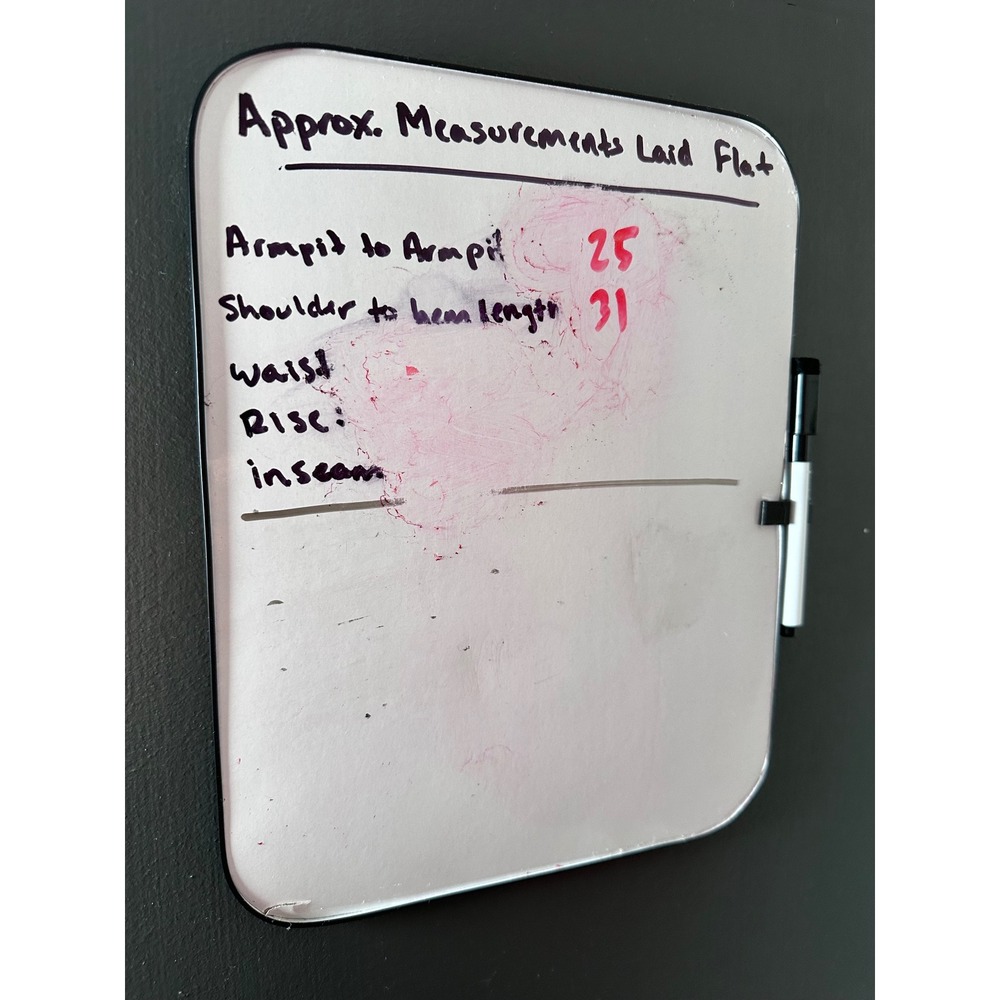 Approx. Measurements Laid Flat
Armpit to Armpit 25
Shoulder to hem length 31
waist
Rise:
inseam